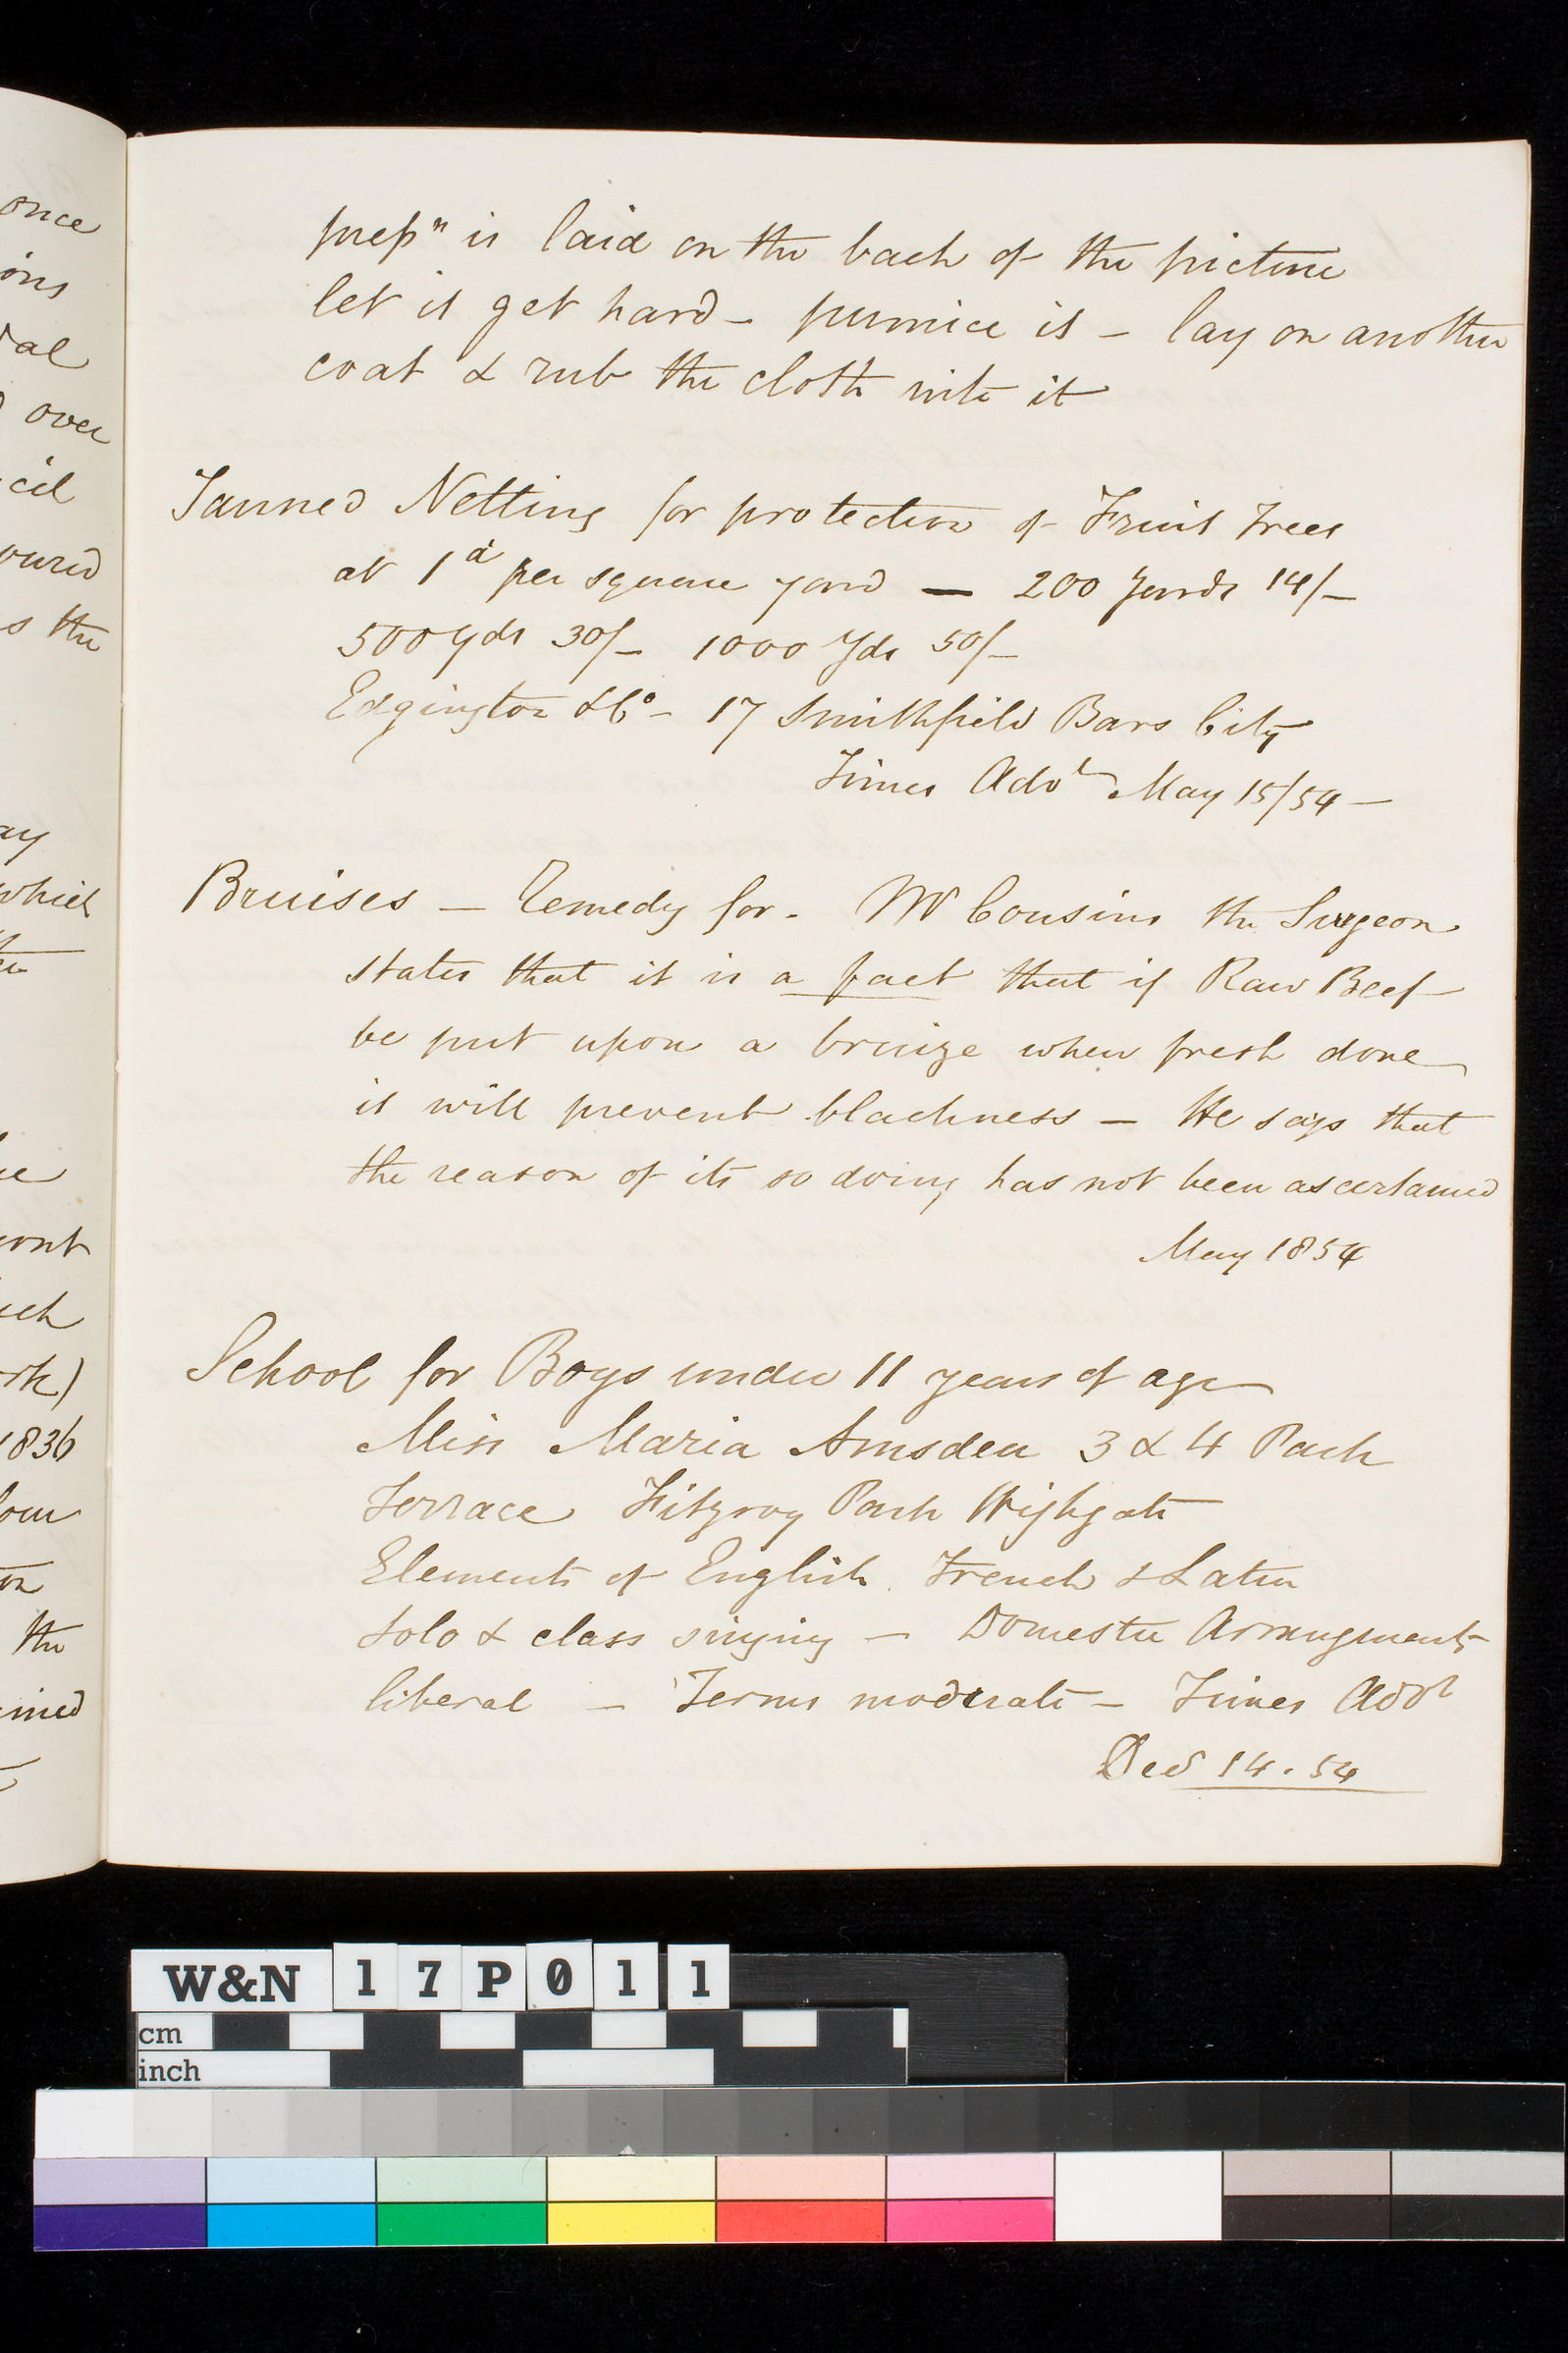 once
ions
over
cil
oured
s the
ay
which
ont
1836
the
ined
prepn is laid on the back of the picture
let it get hard - pumice it - lay on another
coat & rub the cloth into it
Tanned Netting for protection of Fruit Trees
at 1d per square yard — 200 yards 14/-
500 yds 30/- 1000 Yds 50/-
Edgington & Co - 17 Smithfield Bars City
Times Advt May 15/54 -
Bruises — Remedy for - Mr Cousins the Surgeon
states that it is a fact that if Raw Beef
be put upon a bruize when fresh done
it will prevent blackness — He says that
the reason of its so doing has not been ascertained
May 1854
School for Boys under 11 years of age
Miss Maria Amsden 3 & 4 Park
Terrace Fitzroy Park Highgate
Elements of English. French & Latin
Solo & class singing — Domestic Arrangments
liberal — Terms moderate — Times Advt
Dec 14. 54
W&N 17P011
cm
inch